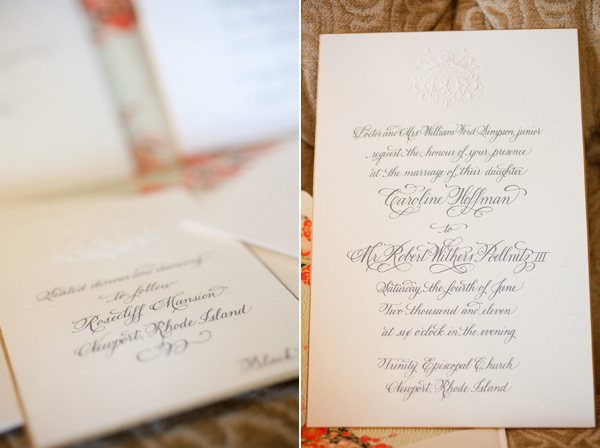 Seated dinner and dancing
to follow
Rosecliff Mansion
Newport, Rhode Island
Black
Doctor and Mrs William Ford Simpson, junior
request the honour of your presence
at the marriage of their daughter
Caroline Hoffman
to
Mr. Robert Withers Poellnitz III
Saturday, the fourth of June
Two thousand and eleven
at six o'clock in the evening
Trinity Episcopal Church
Newport, Rhode Island